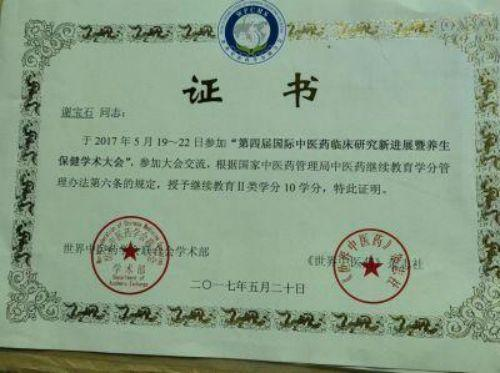 WFCMS
证书
谢宝石 同志:
于2017年5月19~22日参加“第四届国际中医药临床研究新进展暨养生
保健学术大会”,参加大会交流,根据国家中医药管理局中医药继续教育学分管
理办法第六条的规定,授予继续教育Ⅱ类学分10学分,特此证明。
世界中医药学会联合会学术部
《世界中医药》杂志社
学术部
Department of
Academic Exchange
二〇一七年五月二十日